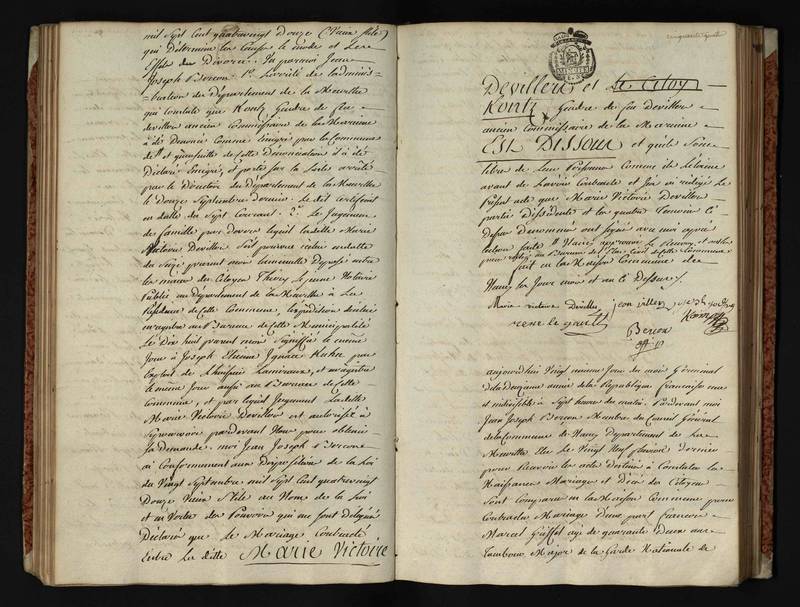 mil Sept Cent quatrevingt douze (Vieux Stile)
qui Détermine les Causes le mode et les
Effets du Divorce. Vu par moi Jean
Joseph Berson 1° L'arrêté de l'adminis
=tration du Département de la Meurthe
qui constate que Kontz Gendre de feu
devillers ancien Commissaire de la Marine
à été Dénoncé Comme émigré par la Commune
et qu'ensuite de cette Dénonciation il a été
Déclaré émigré, et porté sur la Liste arrêtée
par le Directoire du Département de la Meurthe
le Douze Septembre Dernier. Le dit certificat
en datte du Sept Courant. 2° Le Jugement
de famille par devers lequel ladite Marie
Victoire Devillers
du Seize present mois
la main du Citoyen Thiery Lejeune Notaire
Public au Département de la Meurthe à la
Residence de cette Commune, Expédition
enregistrée au Bureau de cette Municipalité
Le Dix huit present mois Signiffié le même
Jour à Joseph Etienne Ignace par
Exploit de Lhuissier et enregistré
le même Jour aussi au Bureau de cette
Commune, et par lequel Jugement Ladite
Marie Victoire Devillers est autorisée à
pardevant Nous pour obtenir
Sa demande. moi Jean Joseph Berson
ai Conformement aux Dispositions de la Loi
du Vingt Septembre mil Sept Cent quatrevingt
Douze Vieux Stile au Nom de la Loi
et en Vertu des Pouvoirs qui me sont délégués
Déclaré que le Mariage Contracté
Entre La ditte Marie Victoire
MINUTE
Devillers et Le Citoy
Kontz Gendre de feu Devillers
ancien Commissaire de la Marine
EST DISSOUS et qu'ils Sont
libre de Leur Personnes Comme ils l'étaient
avant de L'avoir Contracté et J'en ai rédigé Le
Présent acte que Marie Victoire Devillers
partie et les quatre Temoins Ci
dessus Denommés ont signé avec moi après
lecture faite
fait en la Maison Commune de
Nancy les Jour mois et an Ci Dessus
Marie victoire Devillers
Berson
off p
aujourd'hui Vingt neuvieme Jour du mois Germinal
de la Deuxieme année de la République française une
et indivisible à Sept heures du matin. Pardevant moi
Jean Joseph Berson Membre du Conseil Général
de la Commune de Nancy Departement de La
Meurthe Elu Le Vingt Neuf pluviose Dernier
pour Recevoir les actes Destinés à Constater Les
Naissances Mariages et Décès des Citoyens
Sont Comparus en la Maison Commune pour
Contracter Mariage D'une part françois
Marcel agé de quarante Deux ans
Tambour Major de la Garde Nationale de